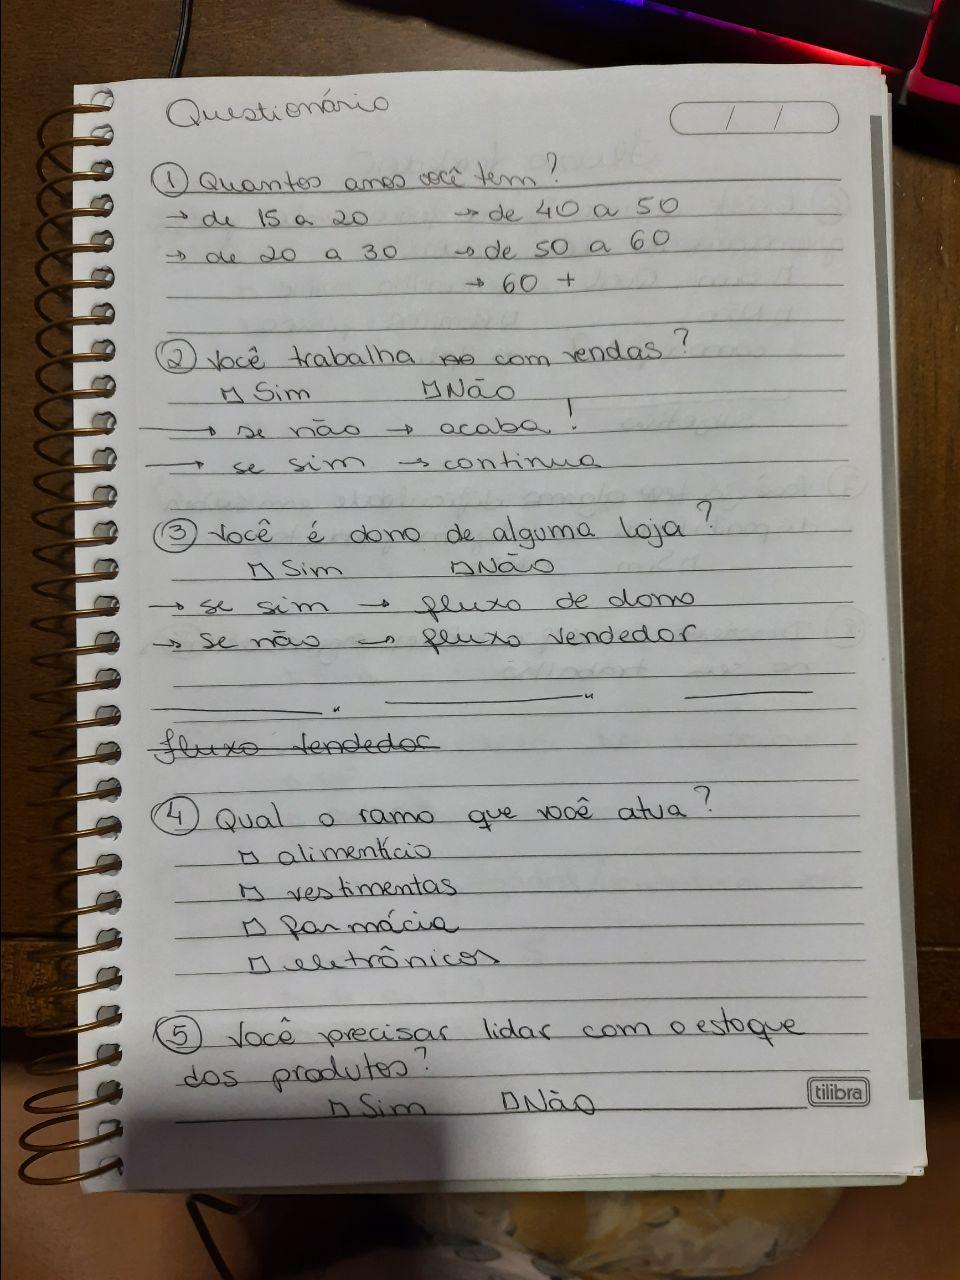 Questionário
/ /
① Quantos anos você tem?
→ de 15 a 20 → de 40 a 50
→ de 20 a 30 → de 50 a 60
→ 60 +
② Você trabalha no com vendas?
□ Sim □ Não
→ se não → acaba!
→ se sim → continua
③ Você é dono de alguma loja?
□ Sim □ Não
→ se sim → fluxo de dono
→ se não → fluxo vendedor
fluxo vendedor
④ Qual o ramo que você atua?
□ alimentício
□ vestimentas
□ farmácia
□ eletrônicos
⑤ Você precisar lidar com o estoque
dos produtos?
□ Sim □ Não
tilibra